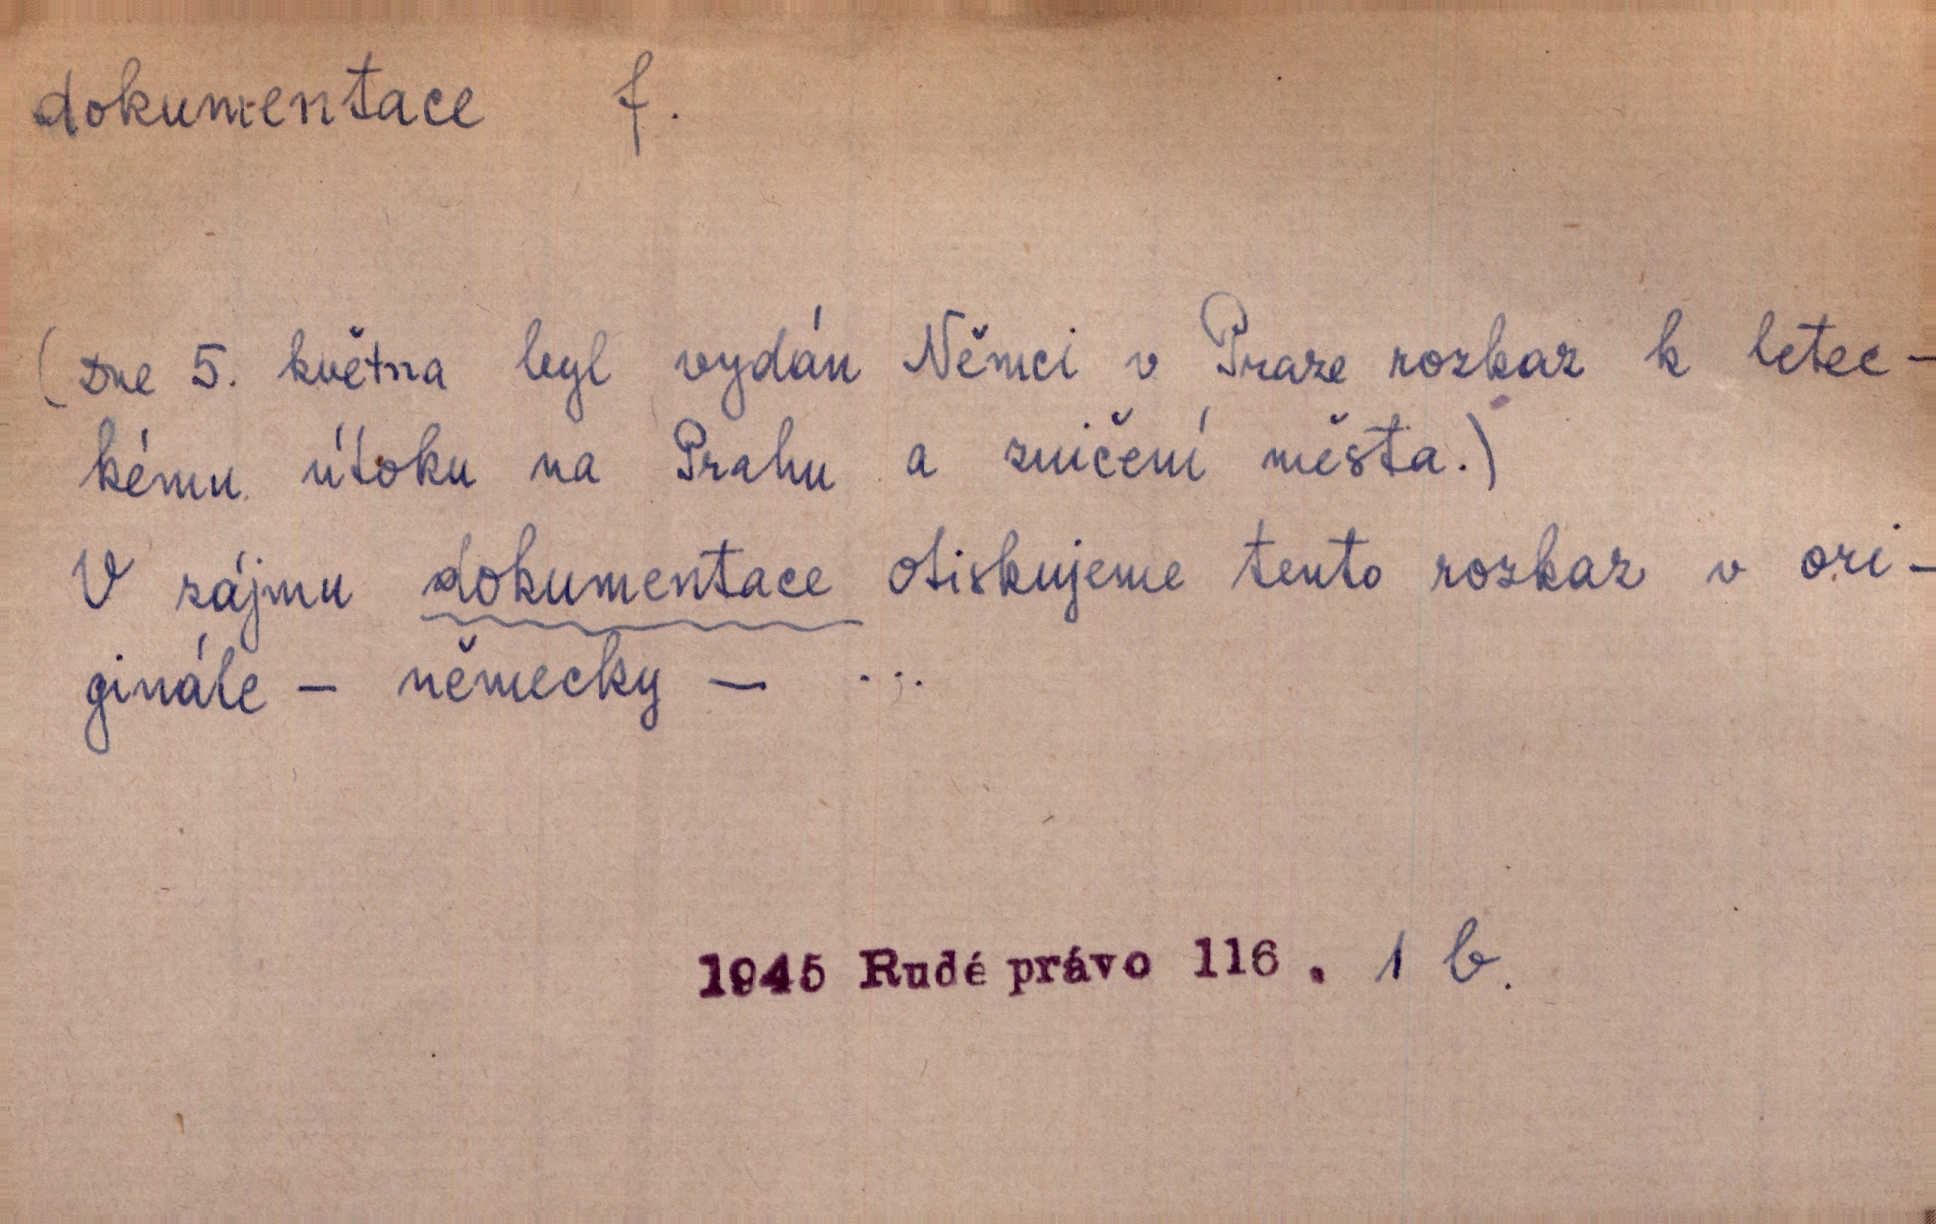 dokumentace f.
(Dne 5. května byl vydán Němci v Praze rozkaz k letec-
kému útoku na Prahu a zničení města.)
V zájmu dokumentace otiskujeme tento rozkaz v ori-
ginále - německy - ...
1945 Rudé právo 116. 1 b.